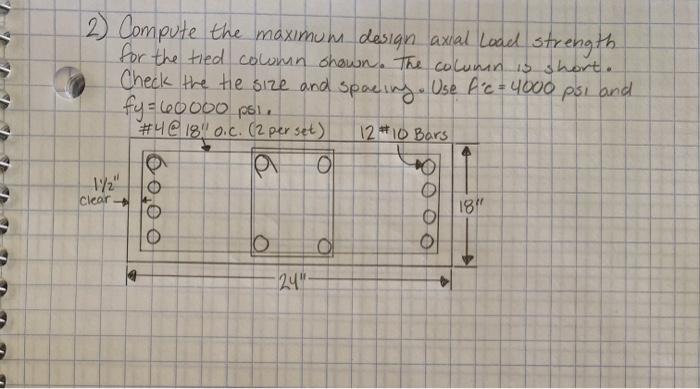 2) Compute the maximum design axial load strength
for the tied column shown. The column is short.
Check the tie size and spacing. Use f'c = 4000 psi and
fy = 60000 psi.
#4@18" o.c. (2 per set) 12 #10 Bars
1 1/2"
clear
18"
24"